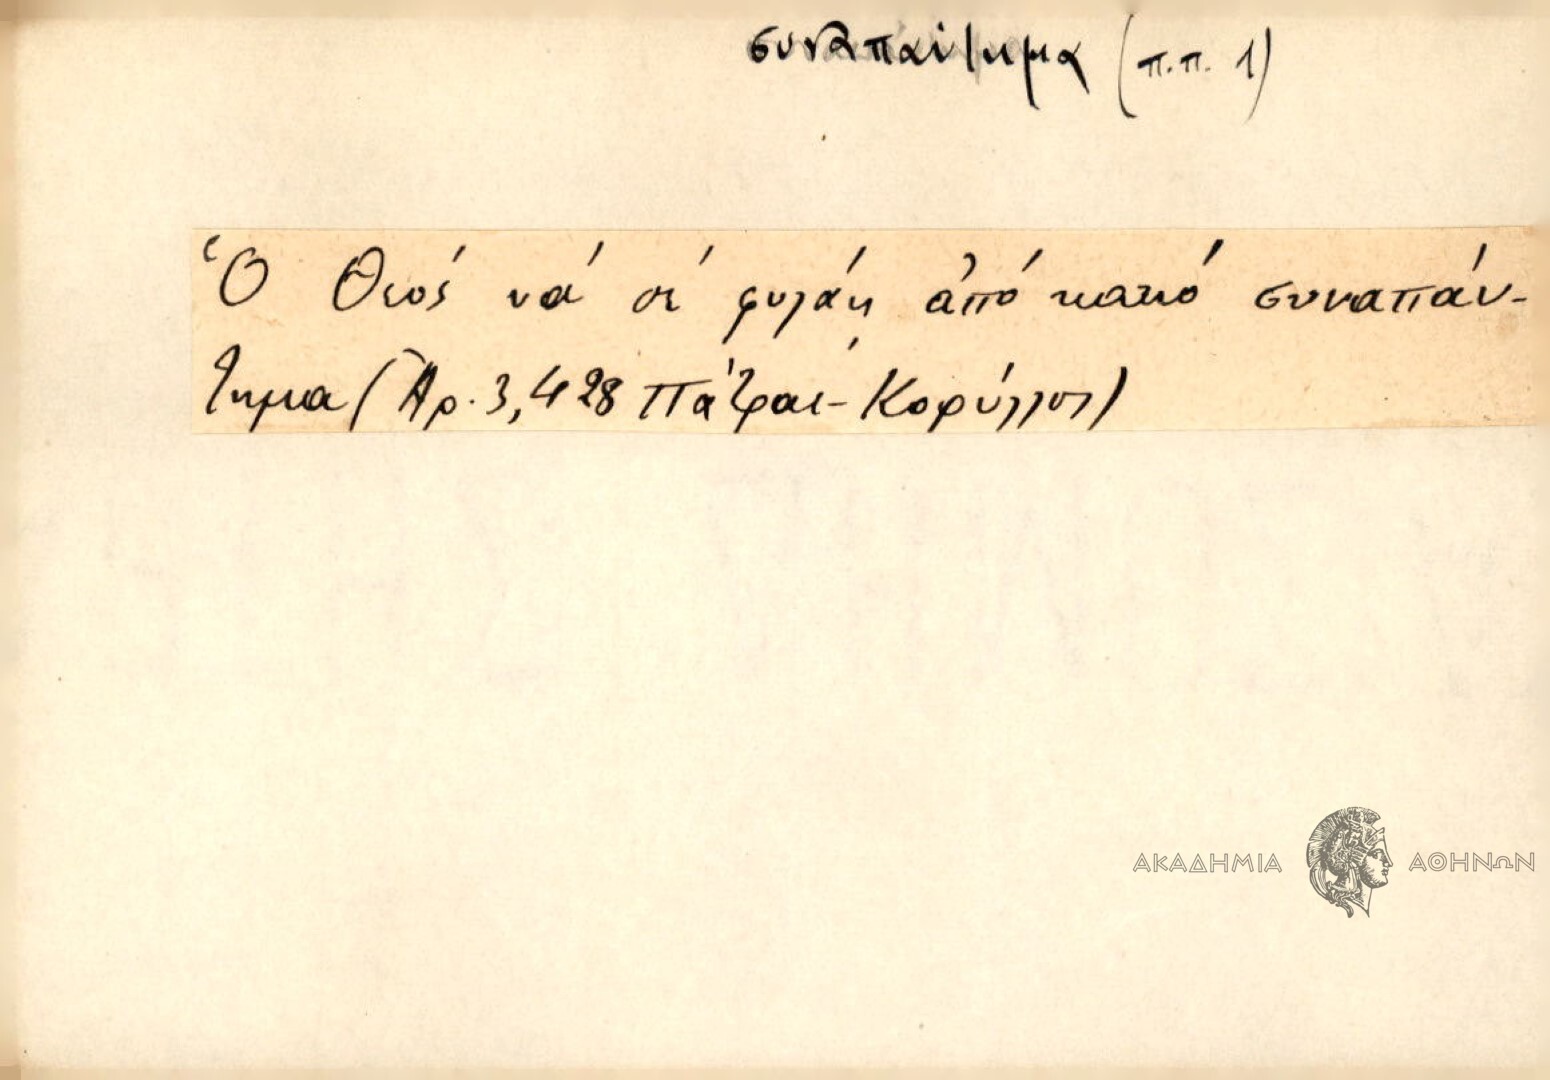 συναπάντημα (π.π. 1)
Ὁ Θεός νά σέ φυλάῃ ἀπό κακό συναπάν-
τημα (Ἀρ. 3,428 Πάτραι - Κορύλλος)
ΑΚΑΔΗΜΙΑ ΑΘΗΝΩΝ